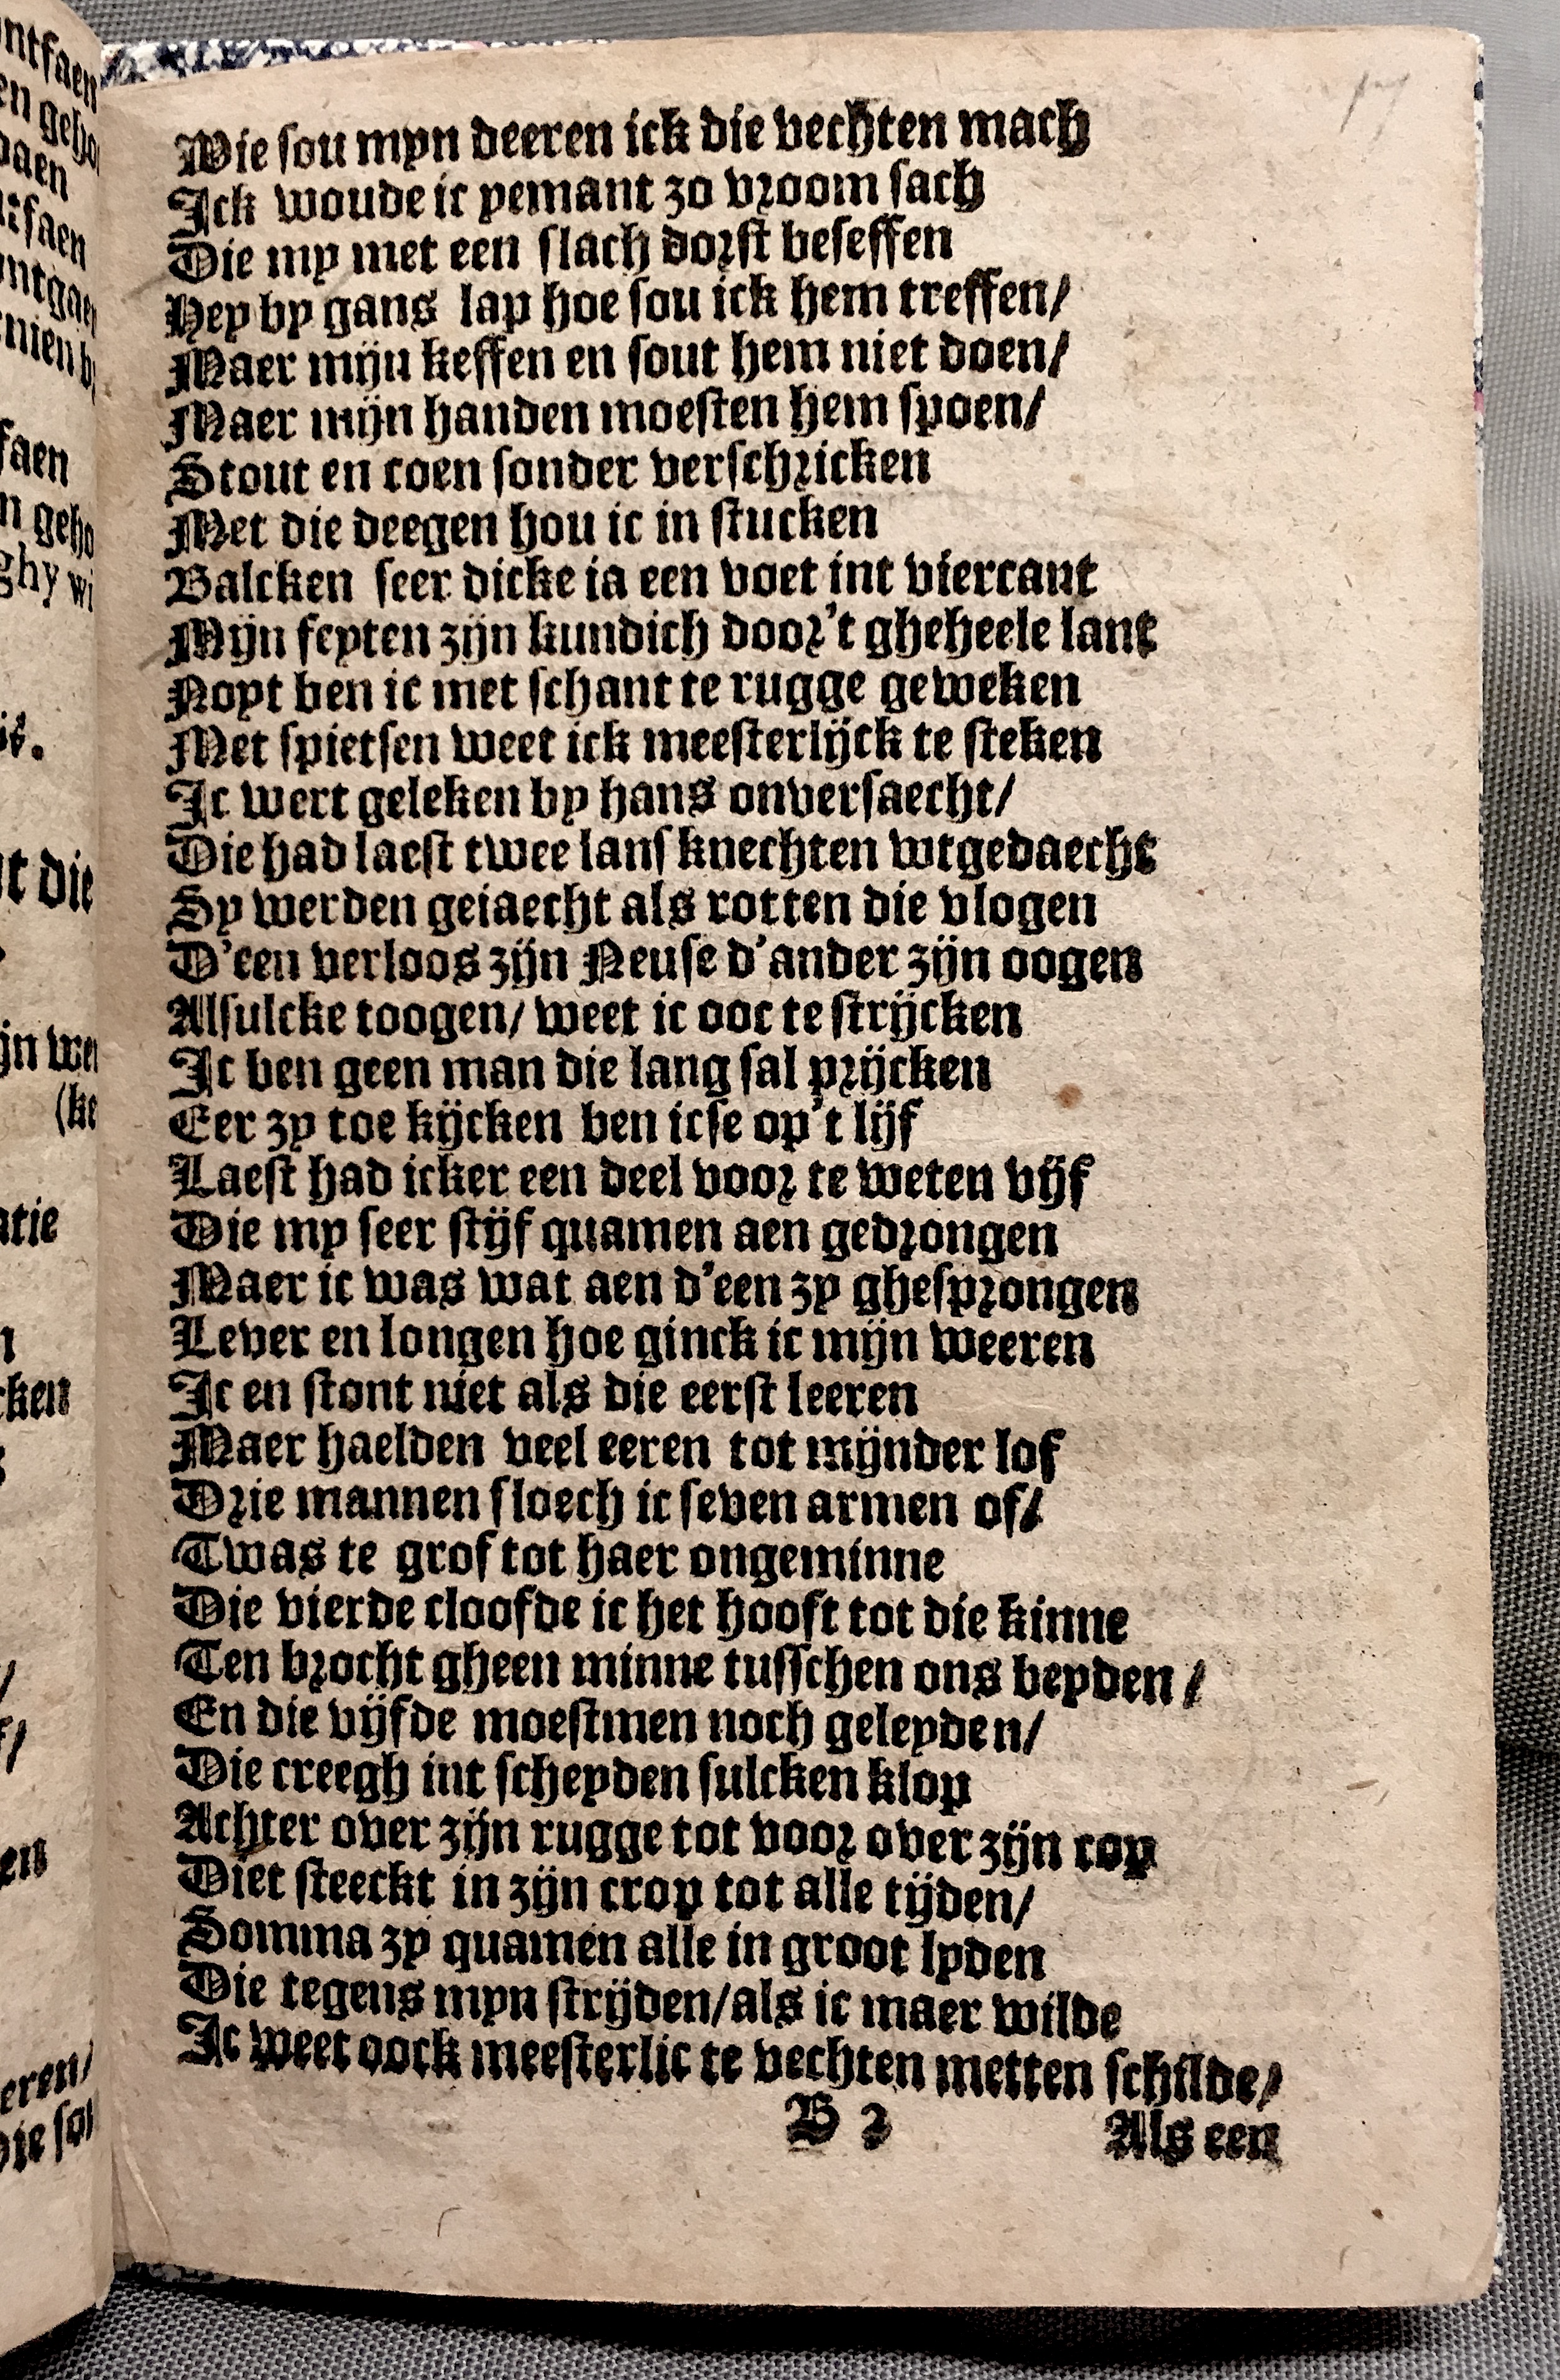 Wie sou myn deeren ick die vechten mach
Ick woude ic yemant zo vroom sach
Die my met een slach dorst beseffen
Hey by gans lap hoe sou ick hem treffen/
Maer mijn keffen en sout hem niet doen/
Maer mijn handen moesten hem spoen/
Stout en coen sonder verschricken
Met die deegen hou ic in stucken
Balcken seer dicke ia een voet int viercant
Mijn feyten zijn kundich door't gheheele lant
Noyt ben ic met schant te rugge geweken
Met spietsen weet ick meesterlijck te steken
Ic wert geleken by hans onversaecht/
Die had laest twee lans knechten wtgedaecht
Sy werden geiaecht als rotten die vlogen
D'een verloos zijn Neuse d'ander zijn oogen
Alsulcke toogen/ weet ic ooc te strijcken
Ic ben geen man die lang sal prijcken
Eer zy toe kijcken ben icse op't lijf
Laest had icker een deel voor te weten vijf
Die my seer stijf quamen aen gedrongen
Maer ic was wat aen d'een zy ghesprongen
Lever en longen hoe ginck ic mijn weeren
Ic en stont niet als die eerst leeren
Maer haelden veel eeren tot mijnder lof
Drie mannen sloech ic seven armen of/
Twas te grof tot haer ongeminne
Die vierde cloofde ic het hooft tot die kinne
Ten brocht gheen minne tusschen ons beyden/
En die vijfde moestmen noch geleyden/
Die creegh int scheyden sulcken klop
Achter over zijn rugge tot voor over zijn cop
Diet steeckt in zijn crop tot alle tijden/
Somma zy quamen alle in groot lyden
Die tegens myn strijden/als ic maer wilde
Ic weet oock meesterlic te vechten metten schilde/
B 2
Als een